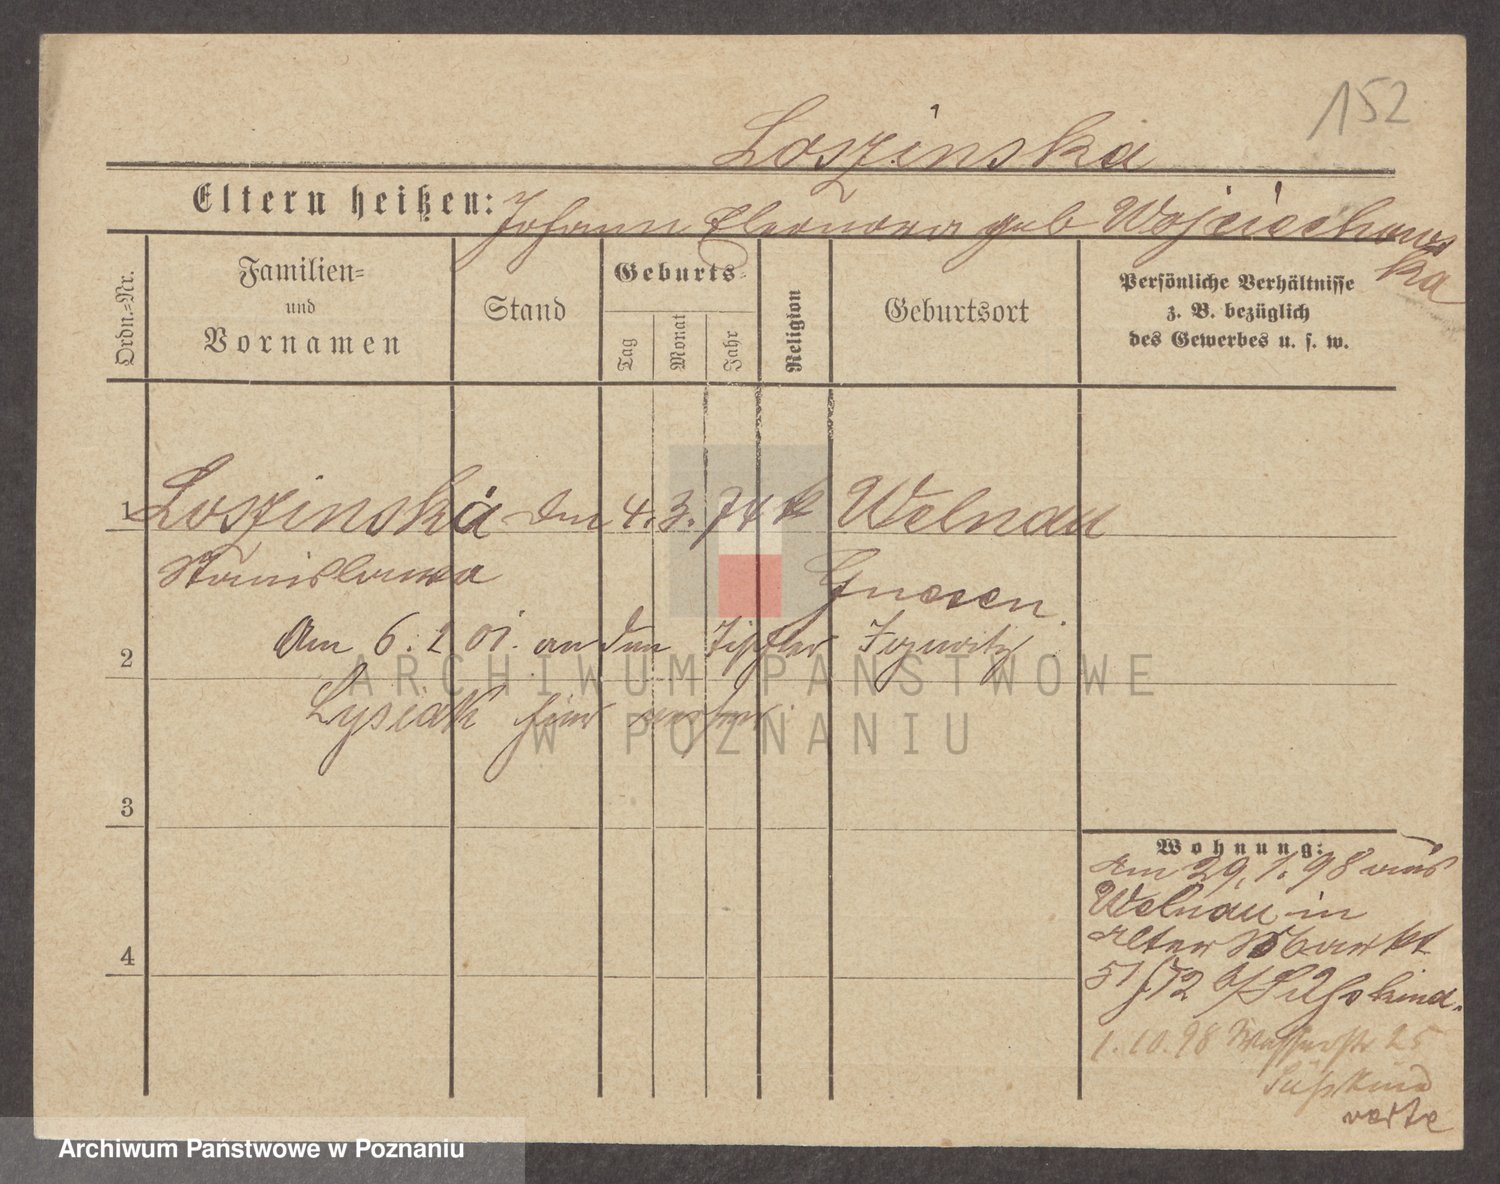 152
Loszinska
Eltern heißen: Johann Eleonora geb Wojciechows
ka
Ordn.-Nr.
Familien-
und
Vornamen
Stand
Geburts-
Tag
Monat
Jahr
Religion
Geburtsort
Persönliche Verhältnisse
z. B. bezüglich
des Gewerbes u. s. w.
1 Loszinska 4. 3. 74 k Welnau
Stanislawa Gnesen.
Am 6. 2 01. an den
2
Lysiak hier
3
Wohnung:
am 29. 1. 98 aus
Welnau in
Alter Markt
4
51/72 b/Süßkind.
1. 10. 98 Wasserstr 25
Süßkind
verte
ARCHIWUM PAŃSTWOWE
W POZNANIU
Archiwum Państwowe w Poznaniu